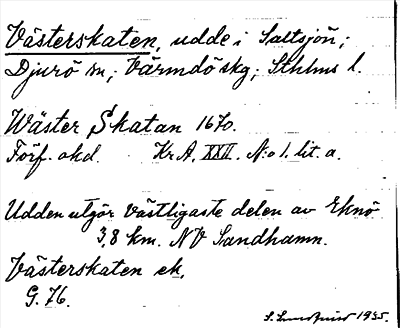 Västerskaten, udde i Saltsjön;
Djurö sn; Värmdö skg; Sthlms l.
Wäster Skatan 1670.
Förf. okd. Kr A. XXII. N:o 1. lit. a.
Udden utgör västligaste delen av Eknö
3,8 km. NV Sandhamn.
Västerskaten ek,
G. 76.
1935.